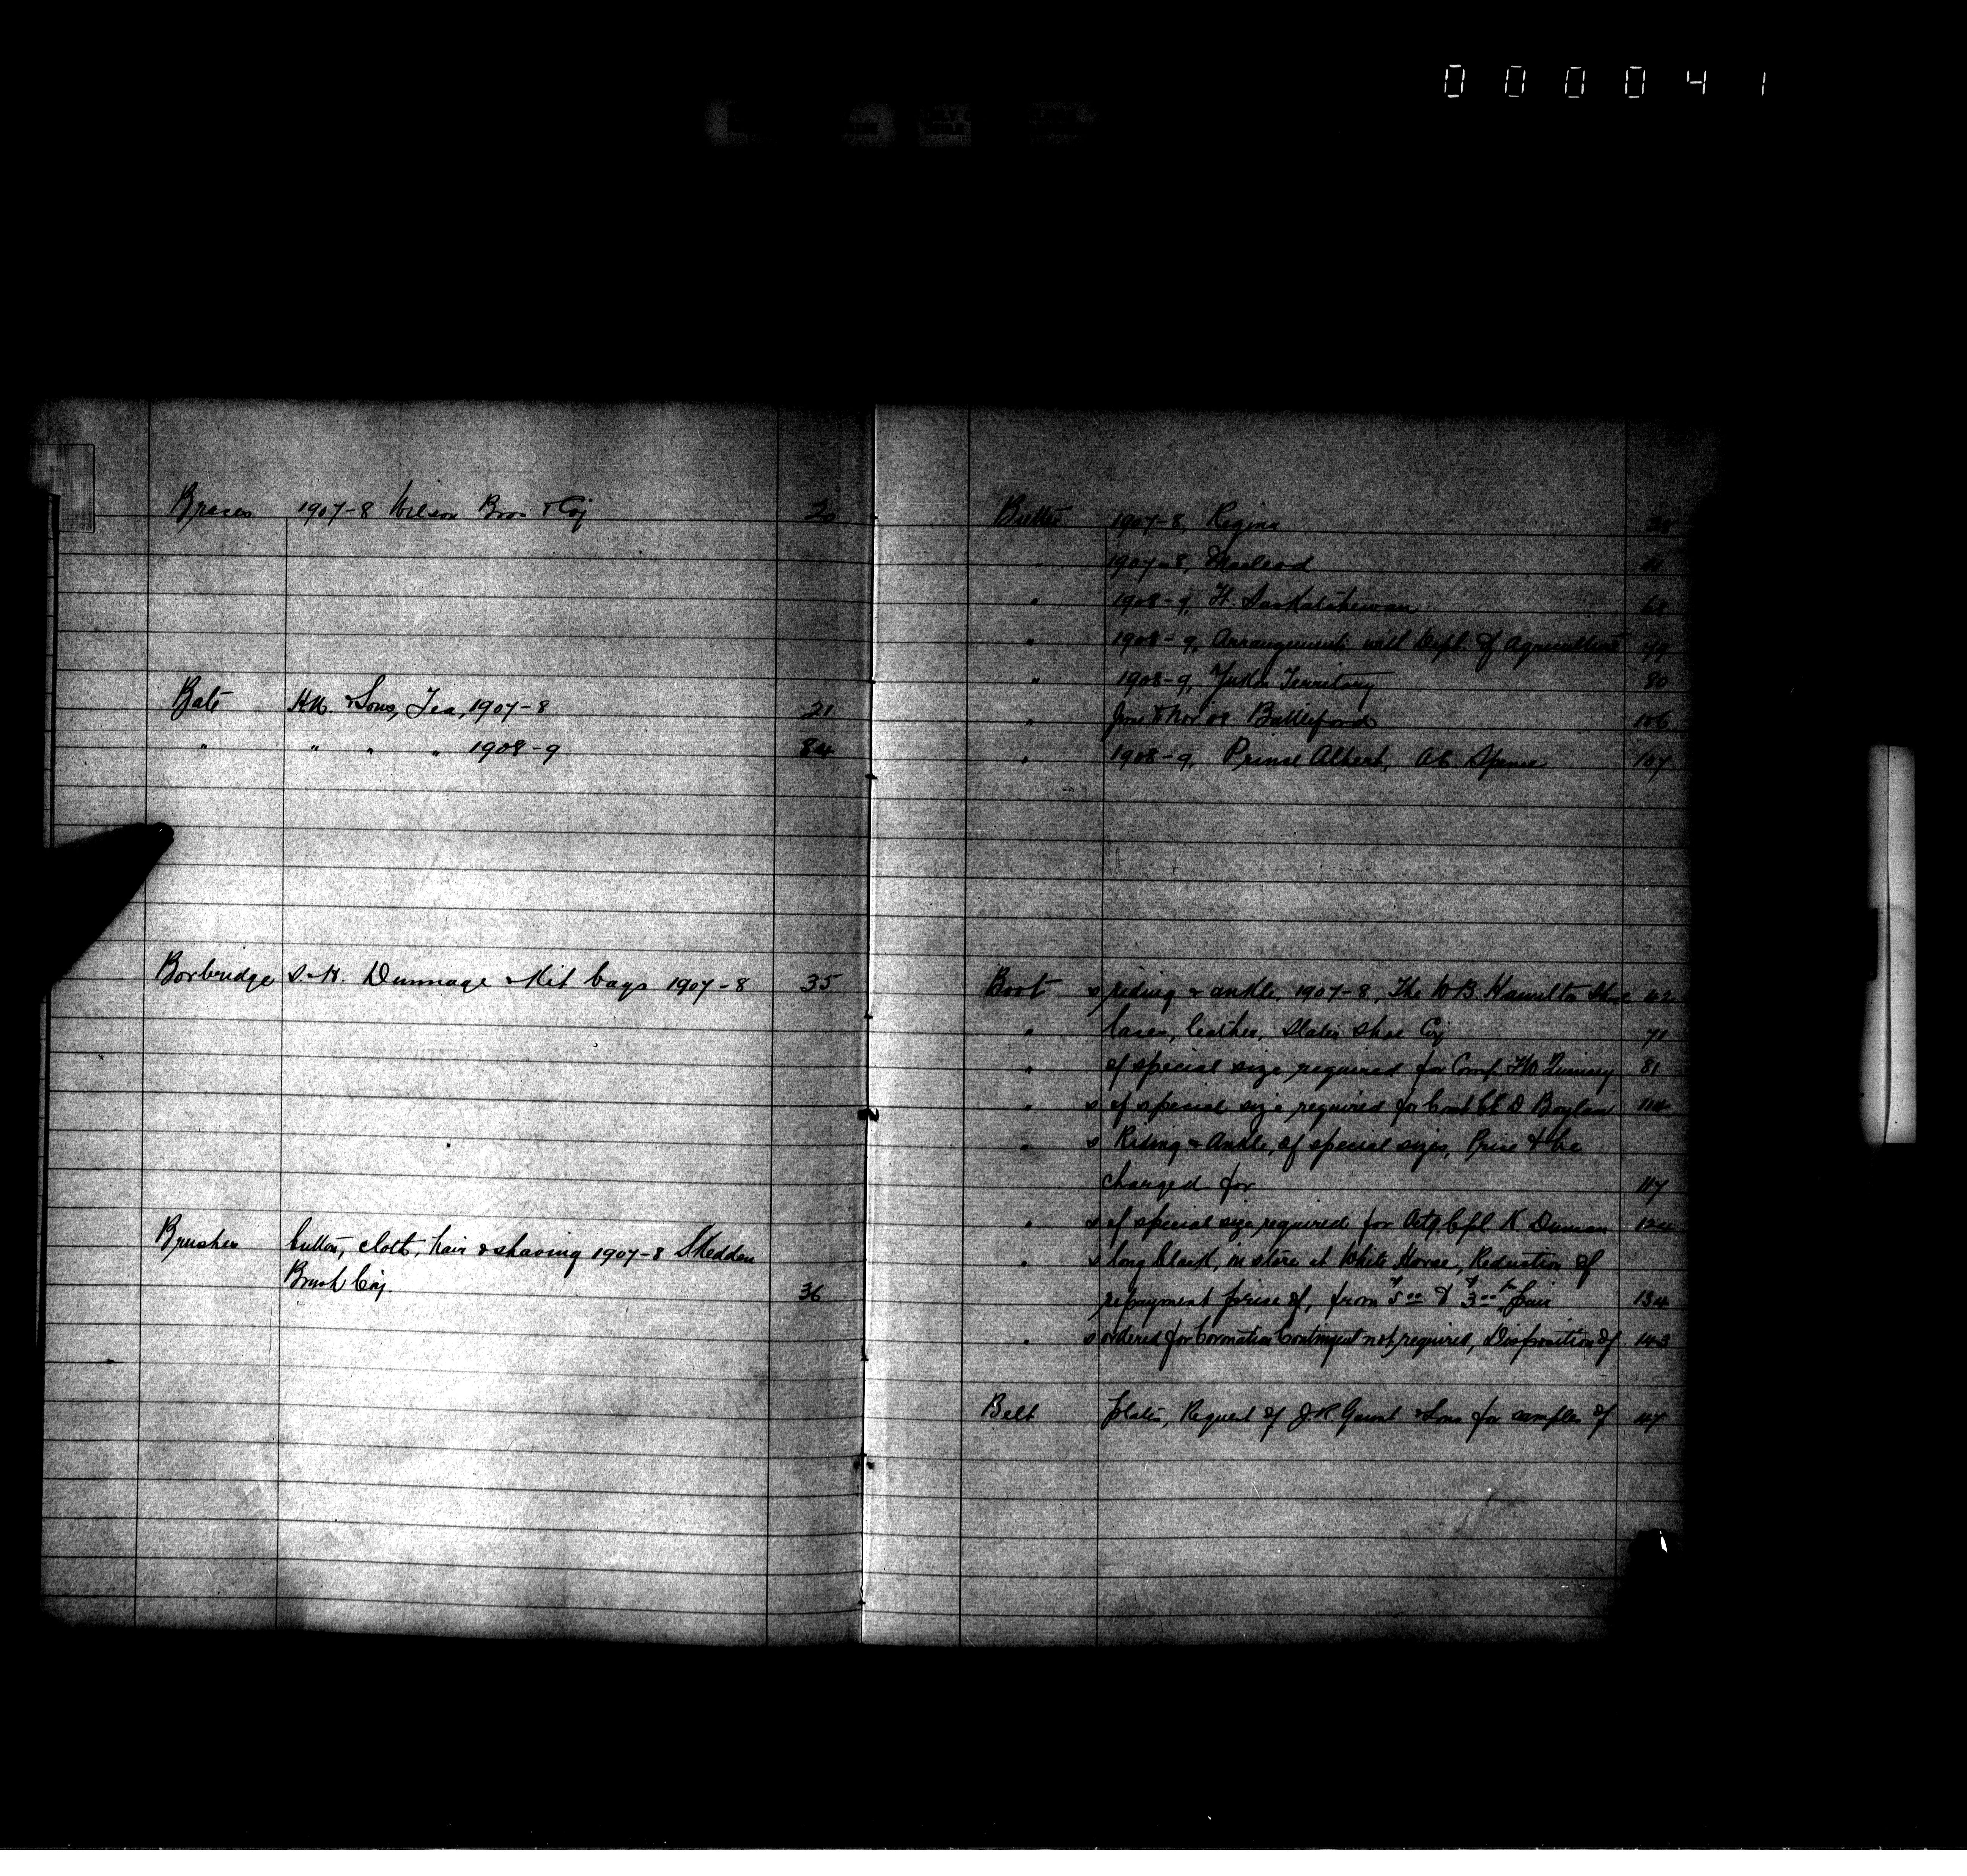 000041
Braces 1907-8 Wilson Bros & Coy 20
Bate H.N. & Sons, Tea, 1907-8 21
" " " " 1908-9 84
Borbridge S.-H. Dunnage & Kit bags 1907-8 35
Brushes button, cloth, hair & shaving 1907-8 Skedden
Brush Coy. 36
Butter 1907-8, Regina
" 1907-8, Macleod
" 1908-9, Ft. Saskatchewan 68
" 1908-9, Arrangements with Dept. of Agriculture
" 1908-9, Yukon Territory 80
" June & Nov '08 Battleford 106
" 1908-9, Prince Albert, 107
Boot s riding & ankle, 1907-8, The W.B. Hamilton Shoe 62
" laces, leather, Slater Shoe Coy 71
" of special size required for 81
" s of special size required for D Boylan 114
" s Riding & Ankle, of special sizes, Price to be
charged for 117
" s of special size, required for Actg. Cpl. K Duncan 124
" s long black, in store at White Horse, Reduction of
repayment price of, from $5.00 to $3.00 per pair 134
" s ordered for Coronation Contingent not required, Disposition of 143
Belt plates, Request of J.R. Gaunt & Sons for samples of 117